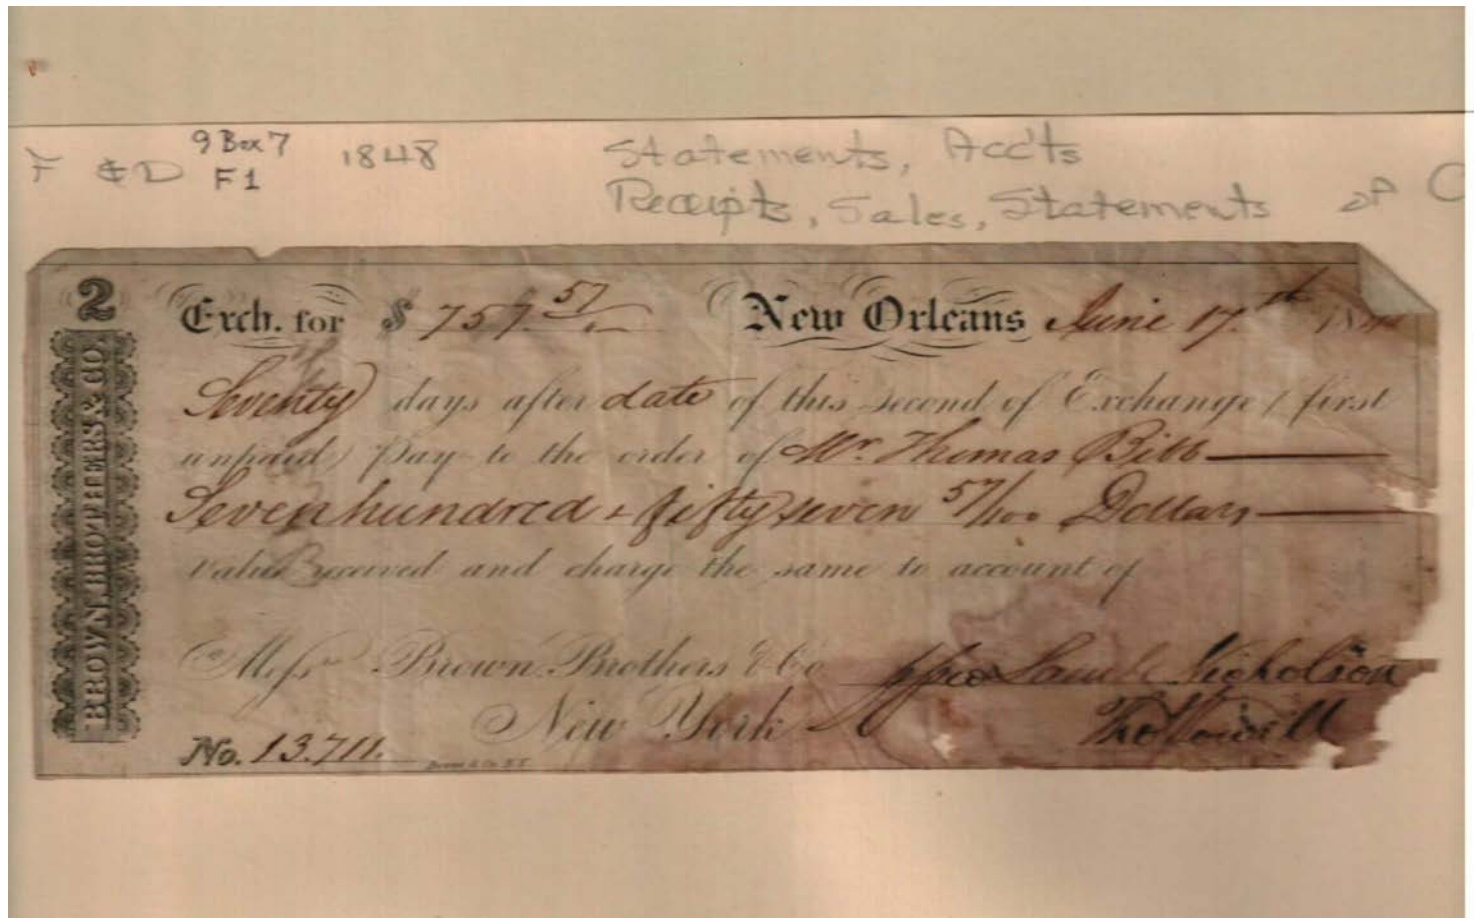 9 Box 7
F & D F1 1848 Statements, Acc'ts
Receipts, Sales, Statements of C
2
BROWN BROTHERS & CO
Exch. for $ 757.57 New Orleans June 17th 184
Seventy days after date of this second of Exchange (first
unpaid) Pay to the order of Mr. Thomas Bibb
Seven hundred & fifty seven 57/100 Dollars
value received and charge the same to account of
Messrs Brown Brothers & Co Saml. Nicholson
New York
No. 13.711.